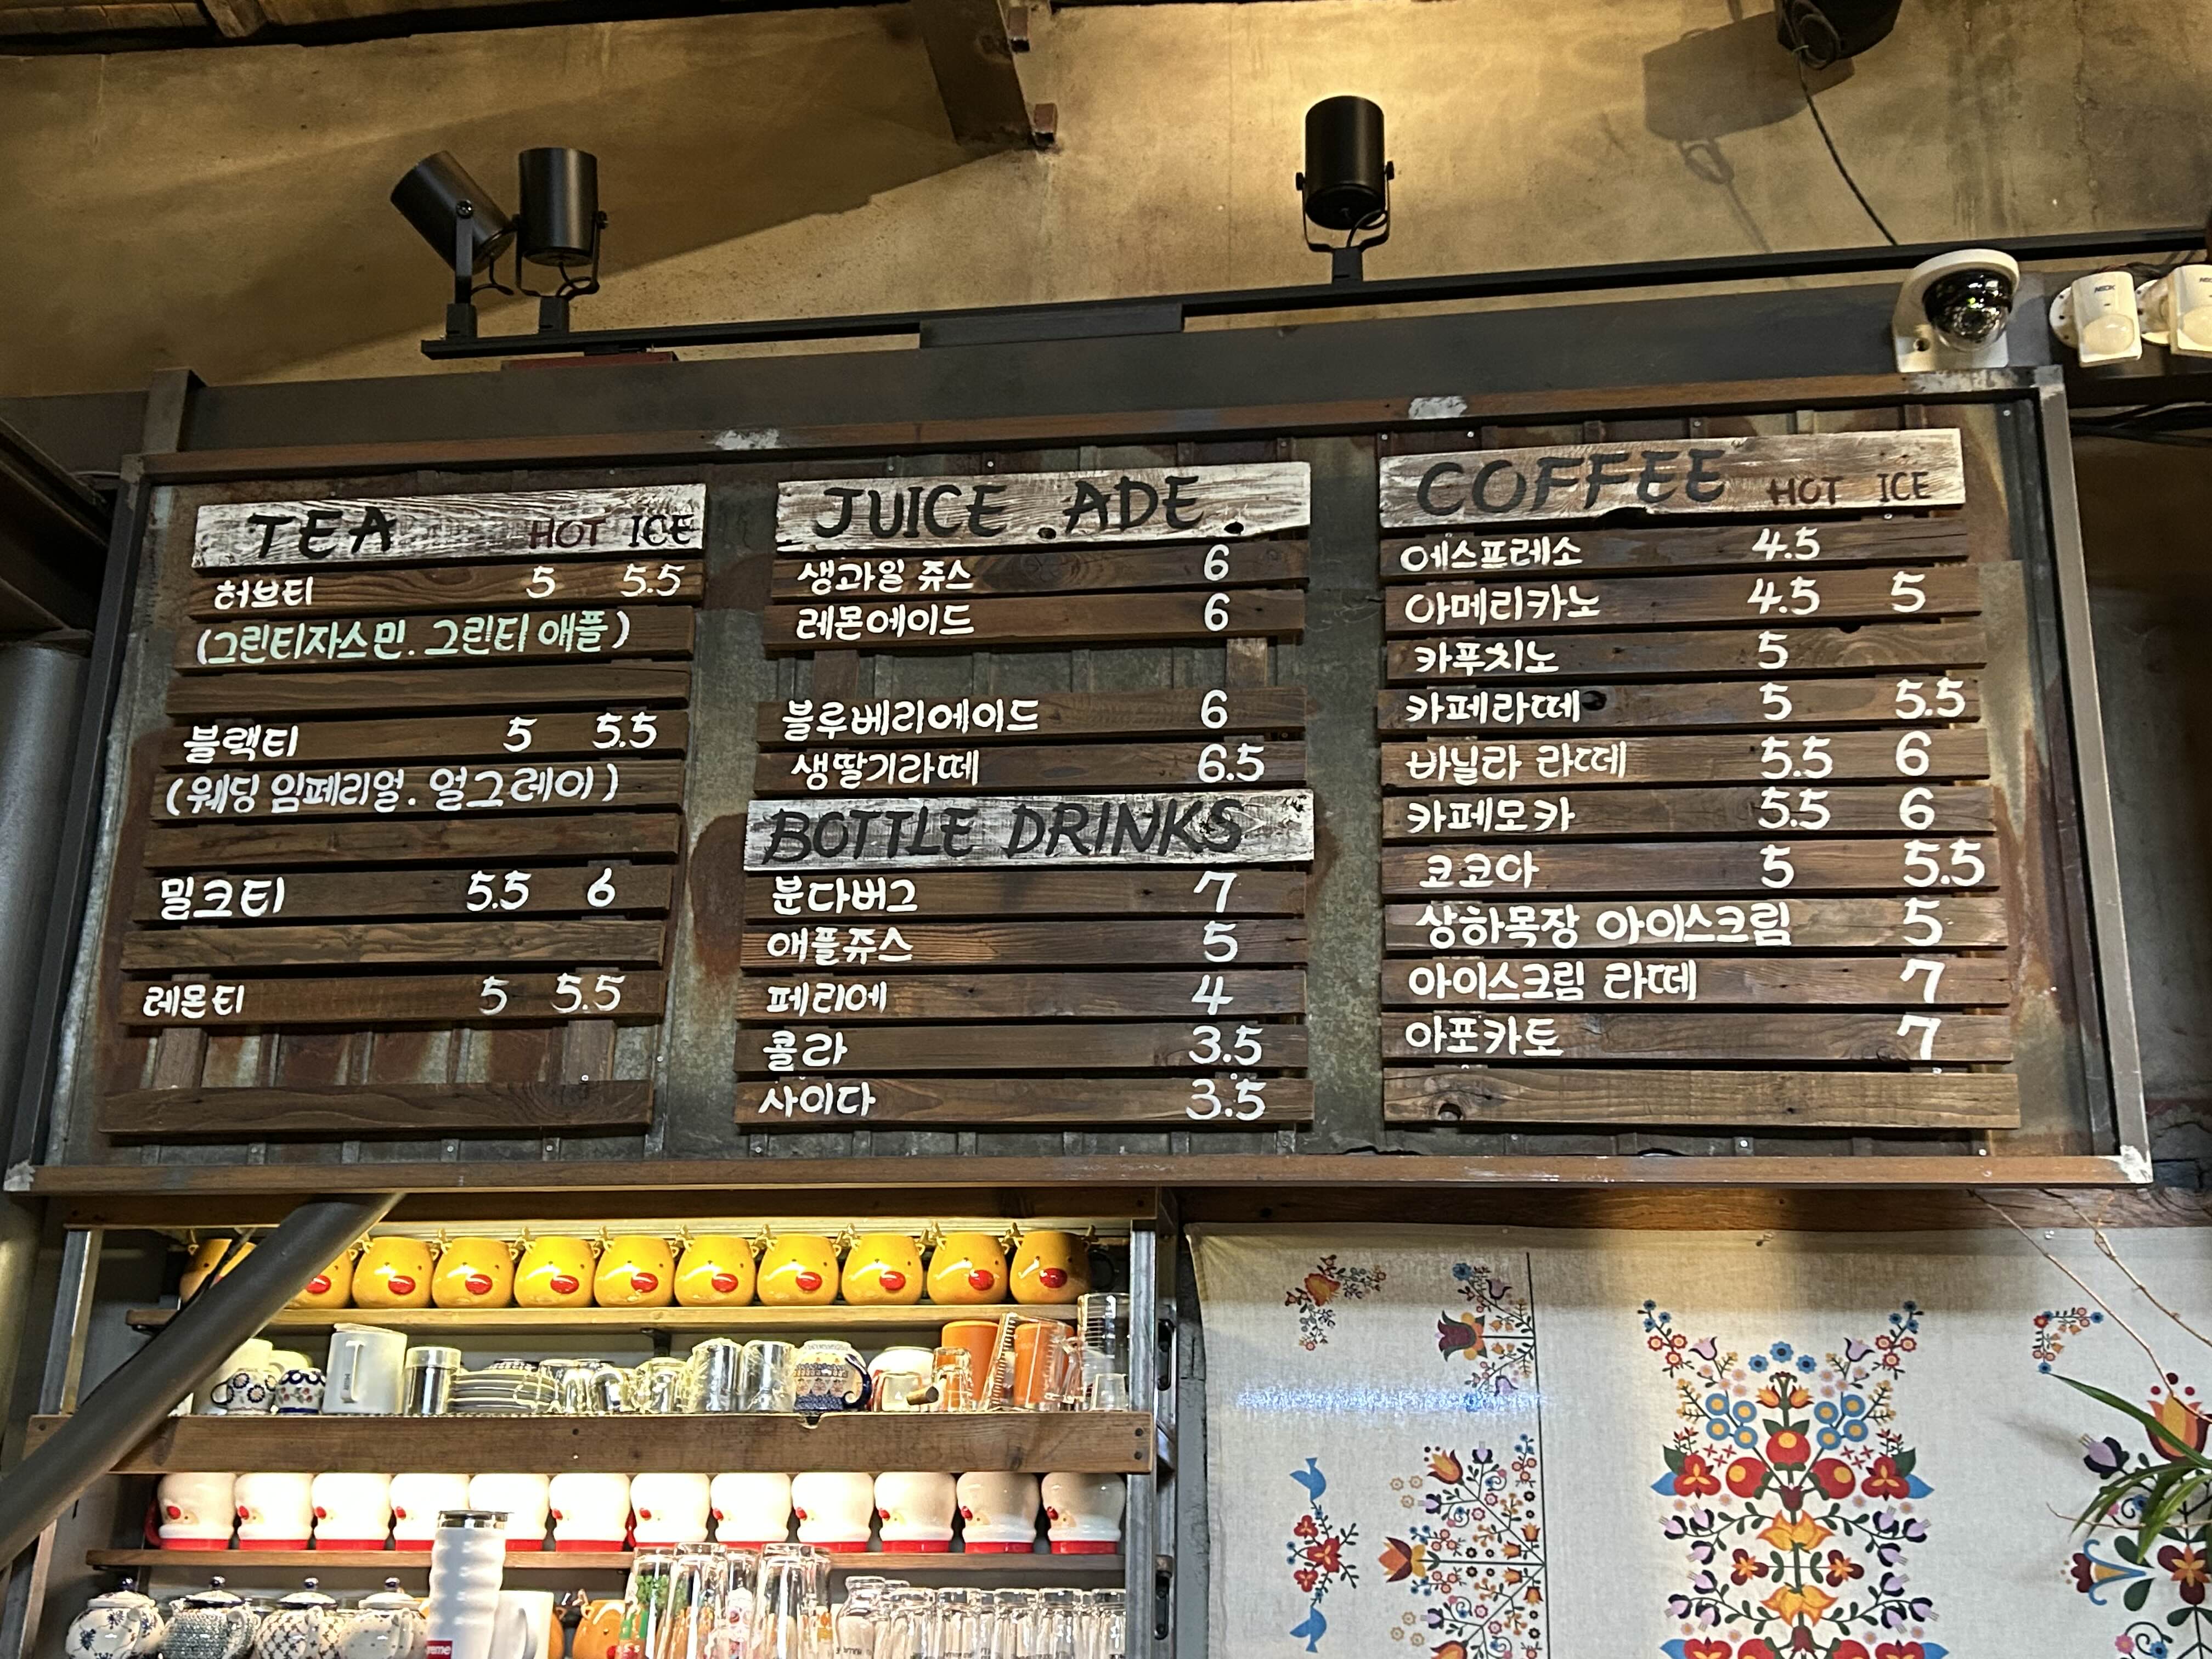 TEA HOT ICE
허브티 5 5.5
(그린티자스민. 그린티 애플)
블랙티 5 5.5
(웨딩 임페리얼. 얼그레이)
밀크티 5.5 6
레몬티 5 5.5
JUICE .ADE.
생과일 쥬스 6
레몬에이드 6
블루베리에이드 6
생딸기라떼 6.5
BOTTLE DRINKS
분다버그 7
애플쥬스 5
페리에 4
콜라 3.5
사이다 3.5
COFFEE HOT ICE
에스프레소 4.5
아메리카노 4.5 5
카푸치노 5
카페라떼 5 5.5
바닐라 라떼 5.5 6
카페모카 5.5 6
코코아 5 5.5
상하목장 아이스크림 5
아이스크림 라떼 7
아포카토 7